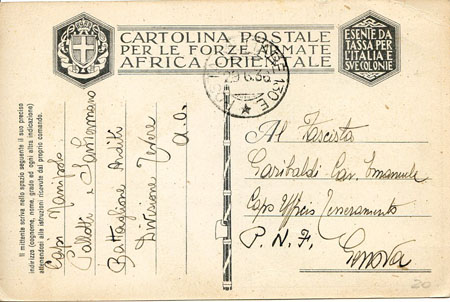 CARTOLINA POSTALE
PER LE FORZE ARMATE
AFRICA ORIENTALE
ESENTE DA
TASSA PER
L'ITALIA E
SVE COLONIE
29.6.36
130 E
Il mittente scriva nello spazio seguente il suo preciso
indirizzo (cognome, nome, grado ed ogni altra indicazione)
attenendosi alle istruzioni ricevute dal proprio comando.
Capi Manipolo
Gallotti e Santermano
Battaglione Arditi
Divisione Tevere
A.O.
Al Fascista
Garibaldi Cav. Emanuele
Capo Ufficio Tesseramento
P. N. F.
Genova
20